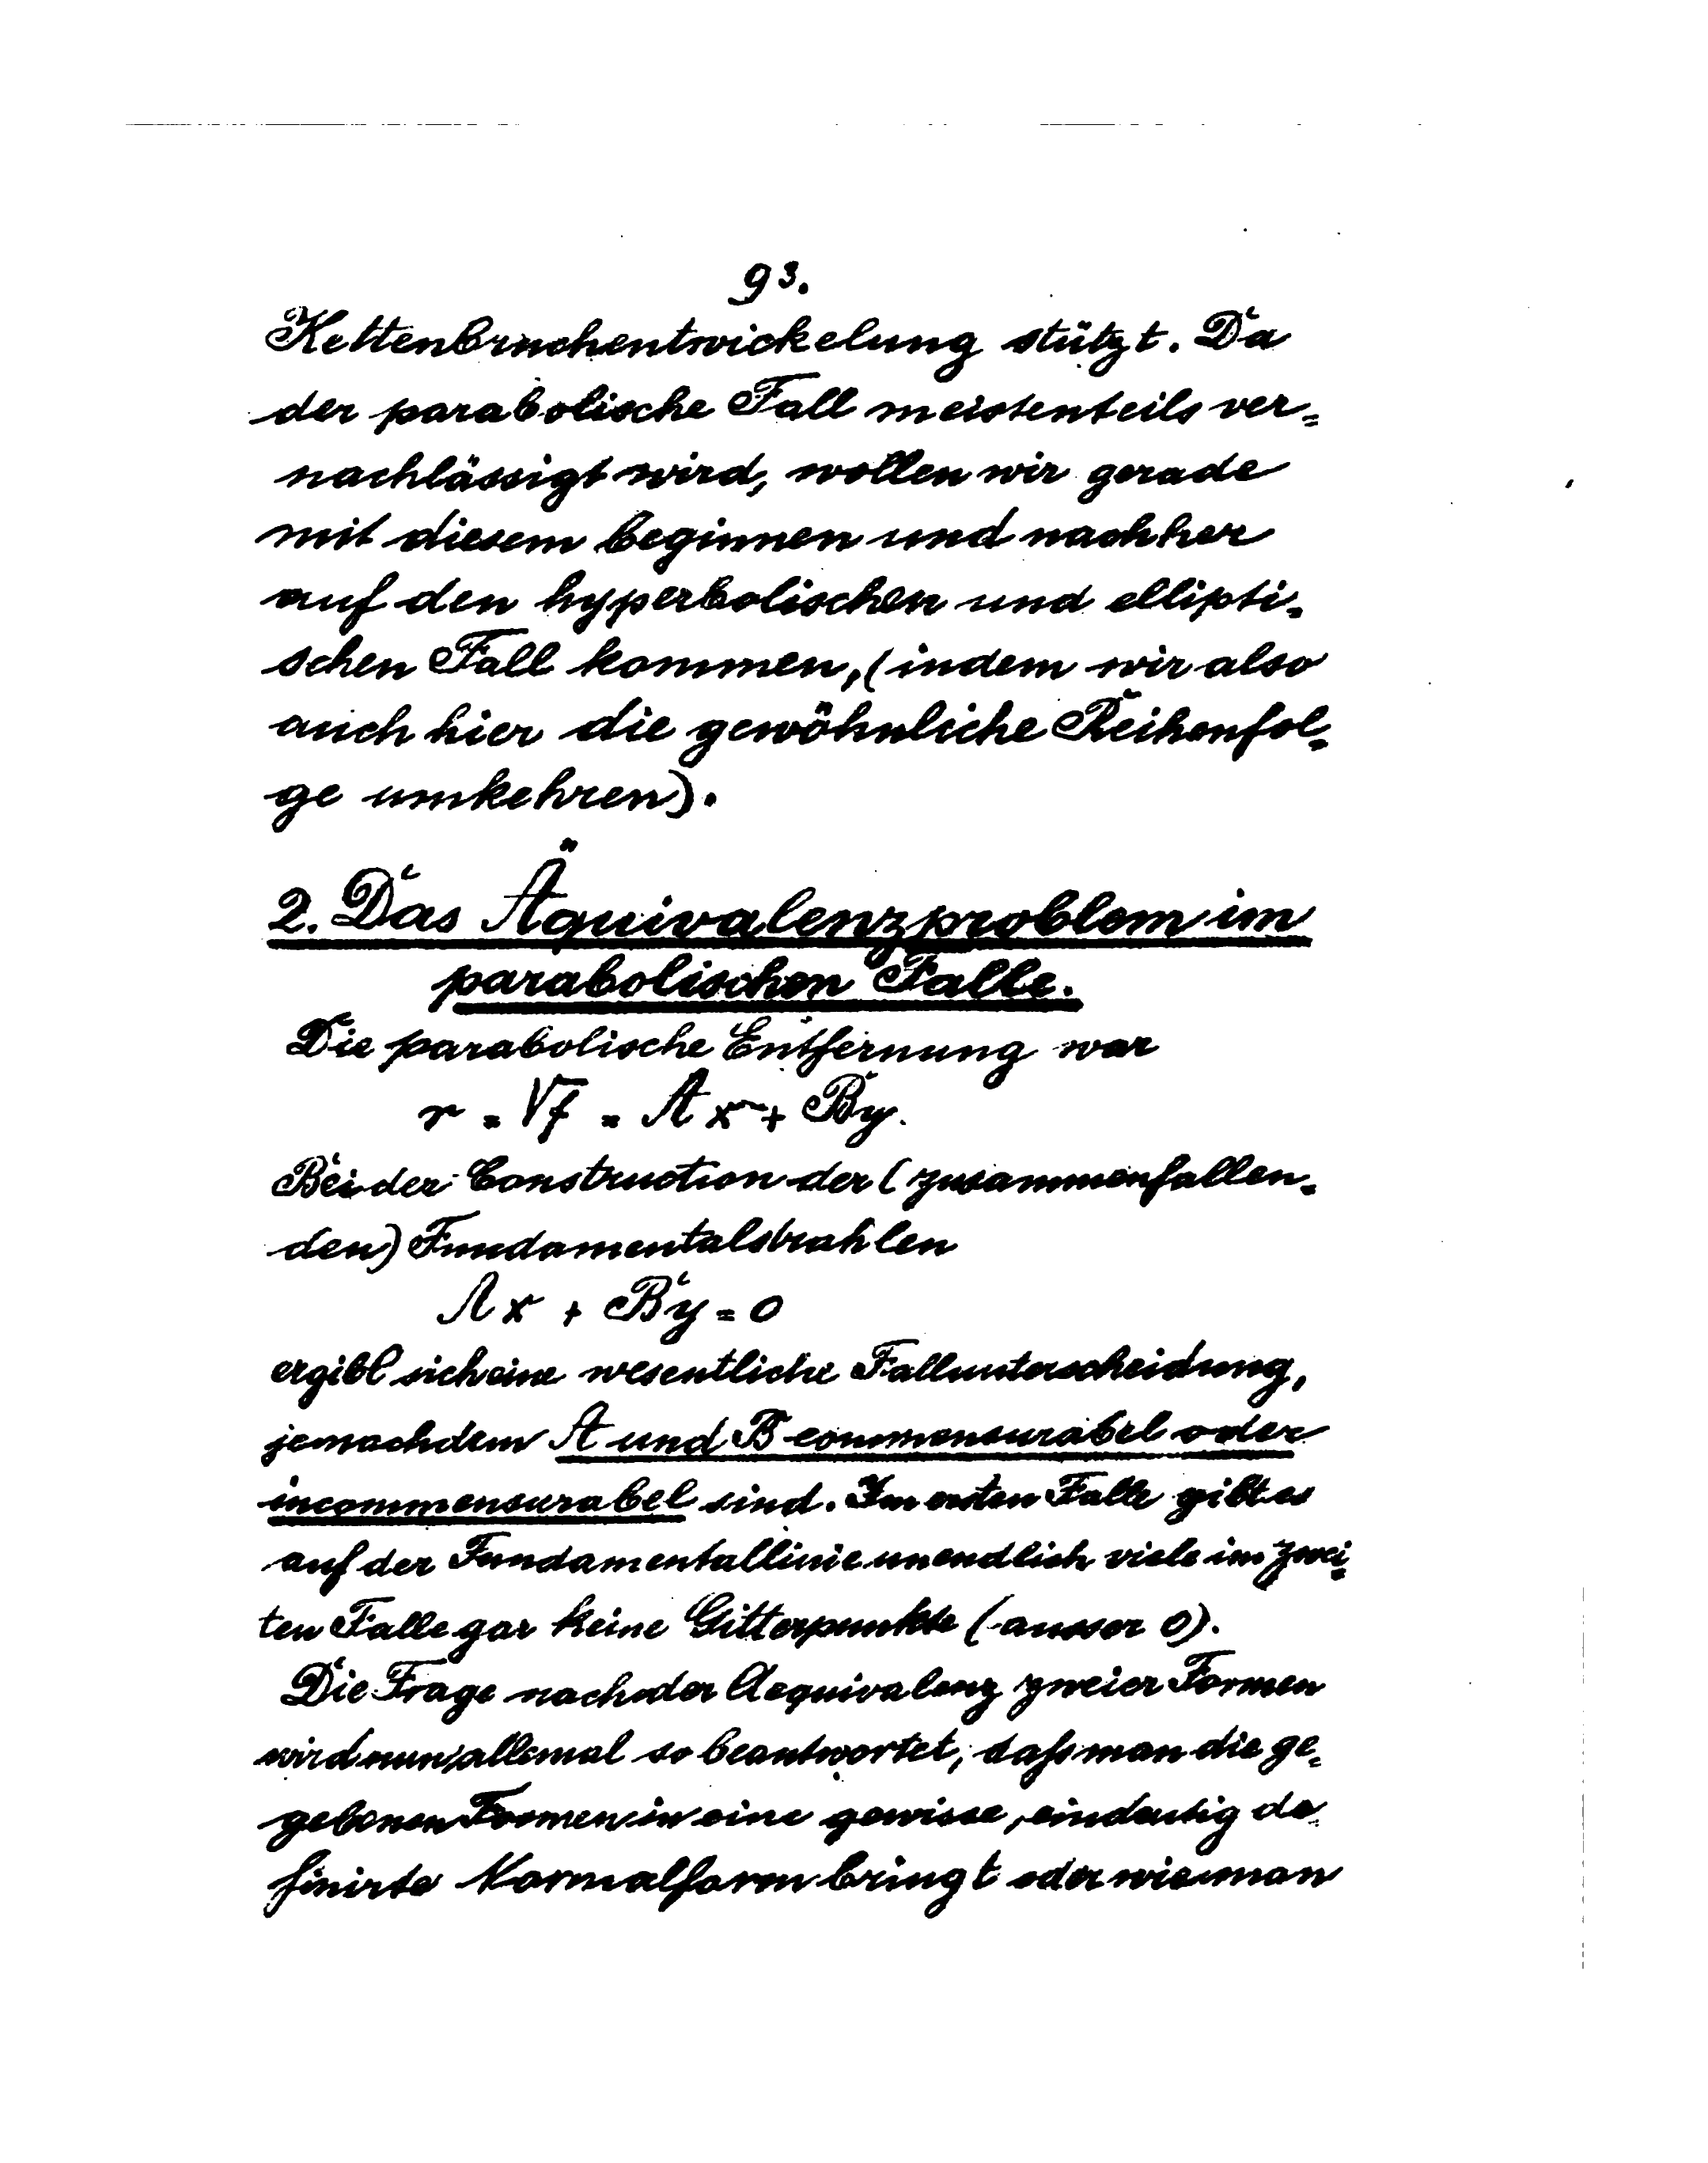 93.
Kettenbruchentwickelung stützt. Da
der parabolische Fall meistenteils ver=
nachlässigt wird, wollen wir gerade
mit diesem beginnen und nachher
auf den hyperbolischen und ellipti=
schen Fall kommen, (indem wir also
auch hier die gewöhnliche Reihenfol=
ge umkehren).
2. Das Äquivalenzproblem im
parabolischen Falle.
Die parabolische Entfernung war
r = √f = Ax + By.
Bei der Construction der (zusammenfallen=
den) Fundamentalstrahlen
Ax + By = 0
ergibt sich eine wesentliche Fallunterscheidung,
jenachdem A und B commensurabel oder
incommensurabel sind. Im ersten Falle gibt es
auf der Fundamentallinie unendlich viele im zwei=
ten Falle gar keine Gitterpunkte (ausser 0).
Die Frage nach der Aequivalenz zweier Formen
wird nun allemal so beantwortet, dafs man die ge=
gebenen Formen in eine gewisse, eindeutig de=
finirte Normalform bringt oder wie man